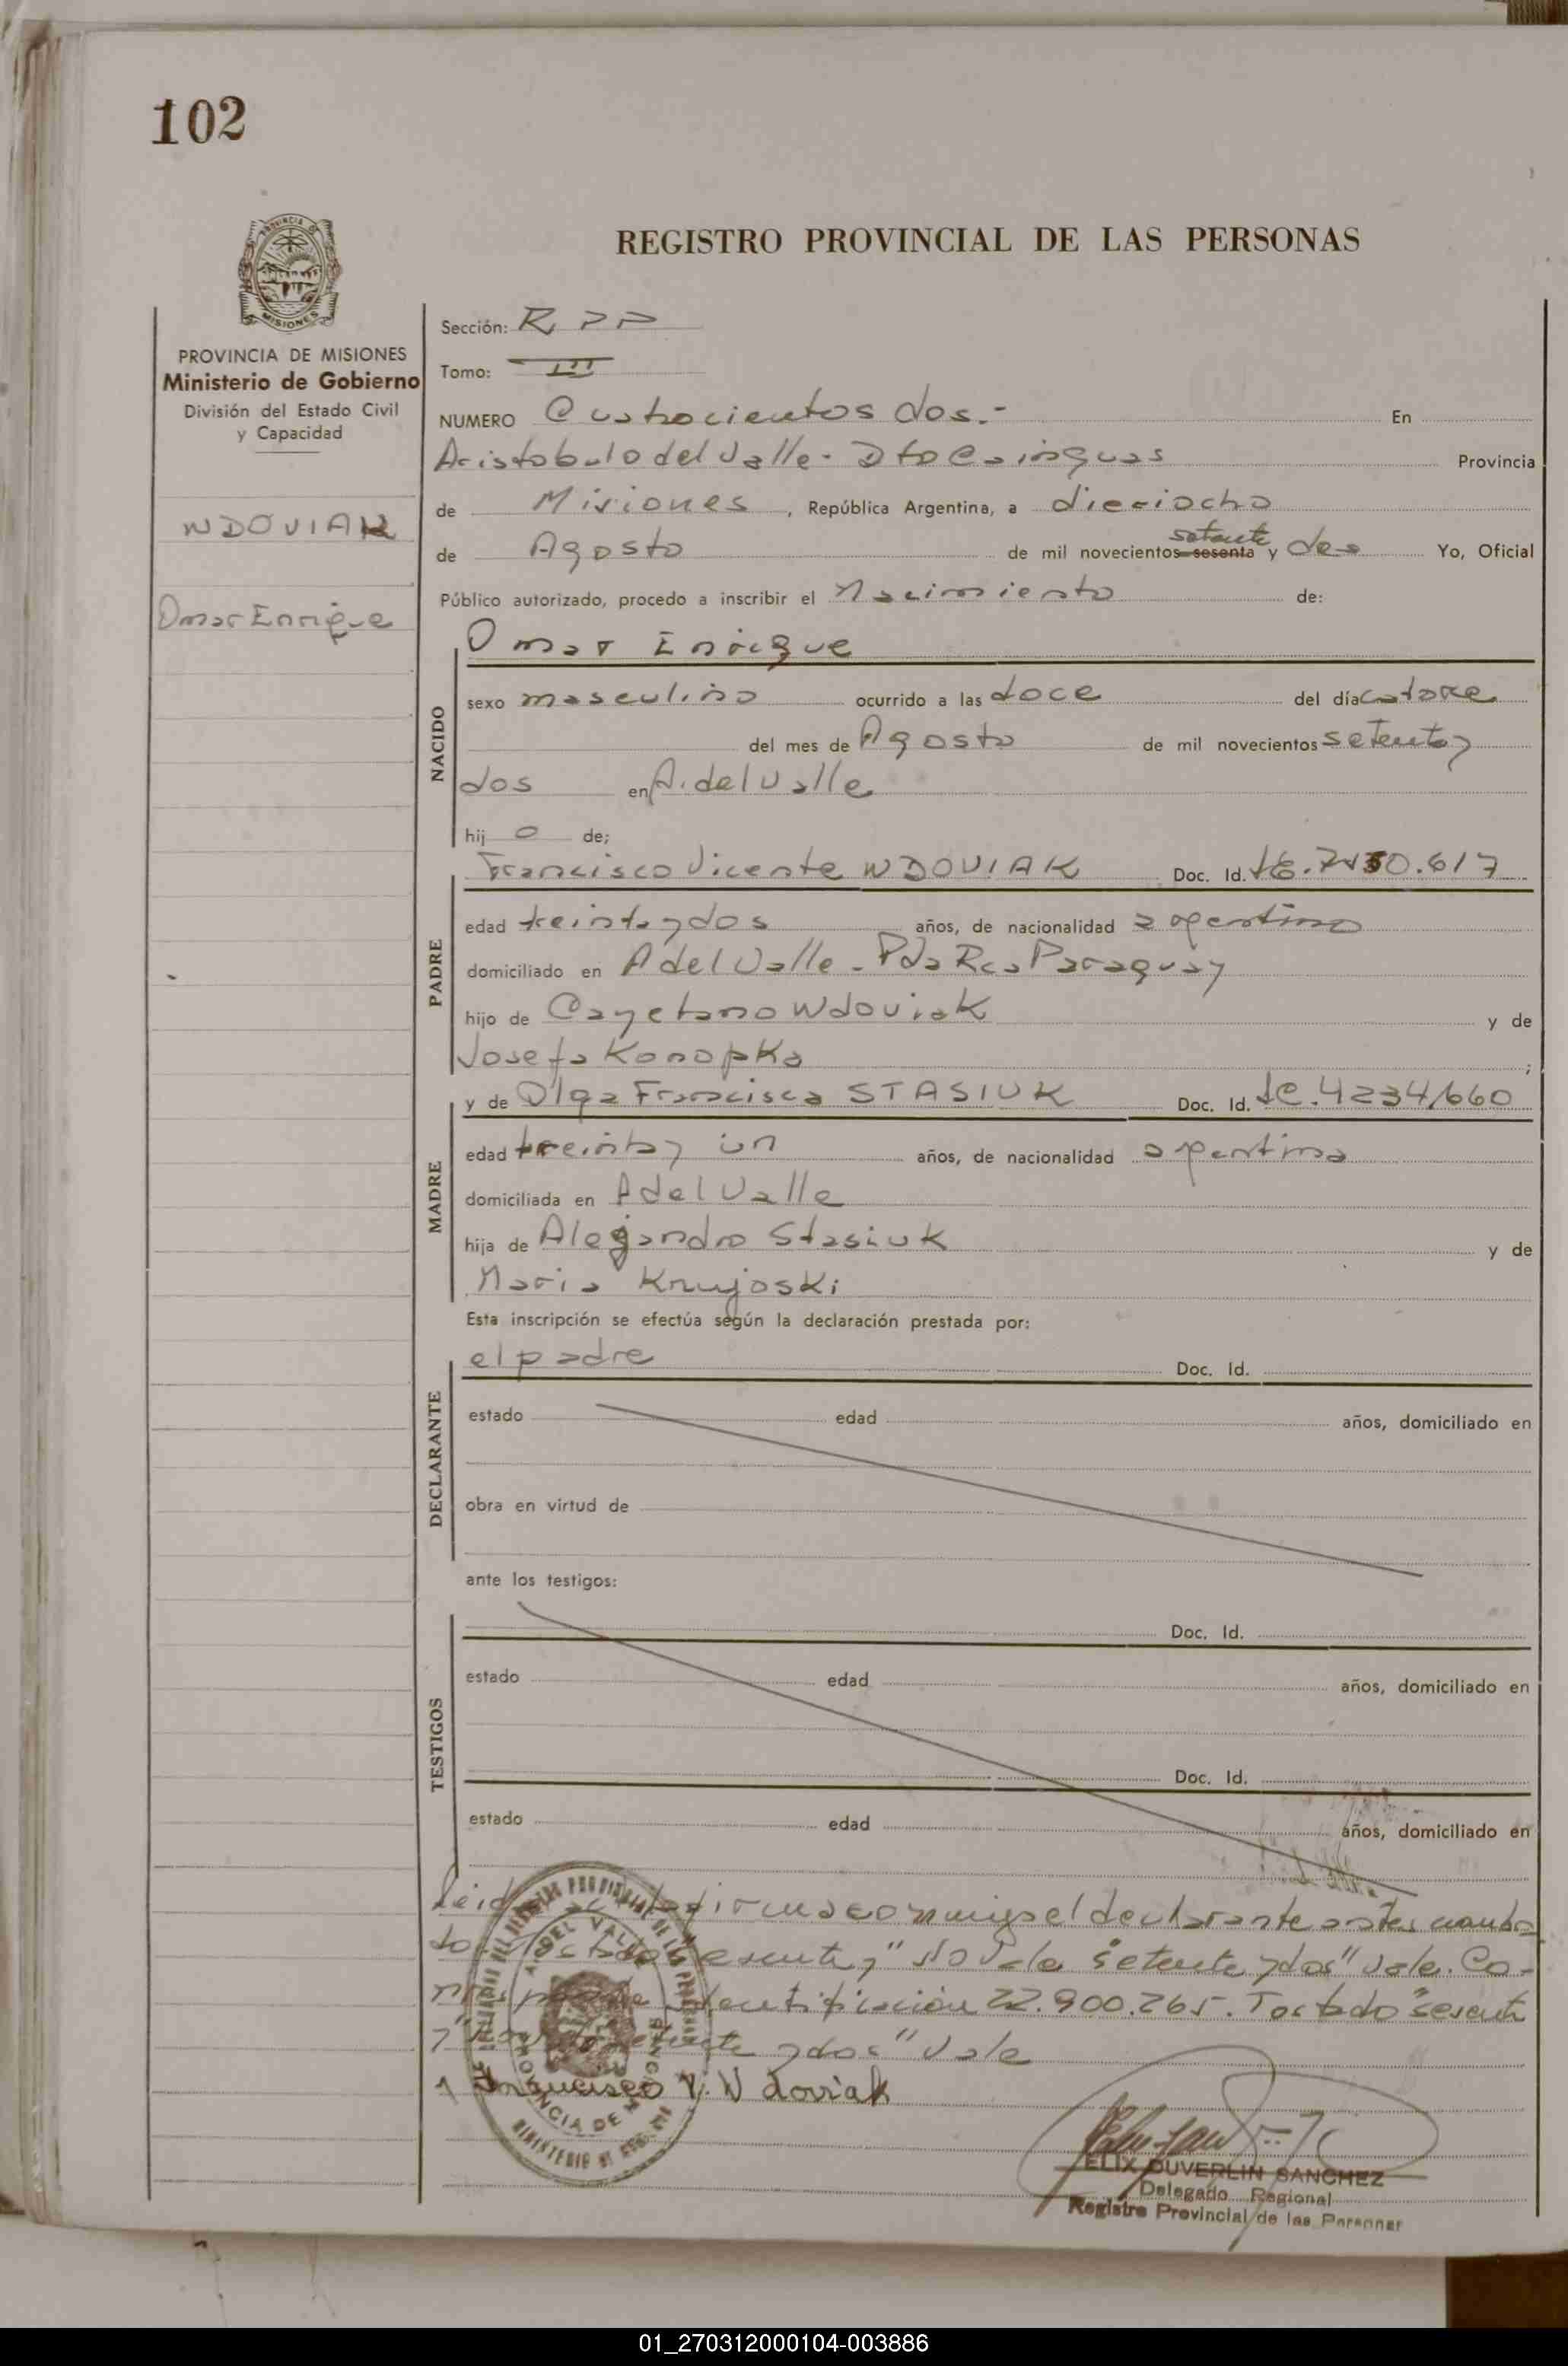 102
PROVINCIA DE MISIONES
Ministerio de Gobierno
División del Estado Civil
y Capacidad
WDOVIAK
Omar Enrique
REGISTRO PROVINCIAL DE LAS PERSONAS
Sección: R P P
Tomo: III
NUMERO Cuatrocientos dos.- En
Aristobulo del Valle - Dto Cainguas Provincia
de Misiones, República Argentina, a dieciocho
de Agosto de mil novecientos sesenta setenta y dos Yo, Oficial
Público autorizado, procedo a inscribir el Nacimiento de:
NACIDO
Omar Enrique
sexo masculino ocurrido a las doce del día catorce
del mes de Agosto de mil novecientos setenta y
dos en A. del Valle
hij o de;
PADRE
Francisco Vicente WDOVIAK Doc. Id.
edad treinta y dos años, de nacionalidad argentino
domiciliado en A del Valle - Pda Rca Paraguay
hijo de Cayetano Wdoviak y de
Josefa Konopka ;
MADRE
y de Olga Francisca STASIUK Doc. Id. 4234660
edad treinta y un años, de nacionalidad argentina
domiciliada en A del Valle
hija de Alejandro Stasiuk y de
Maria Krujoski
Esta inscripción se efectúa según la declaración prestada por:
DECLARANTE
el padre Doc. Id.
estado edad años, domiciliado en
obra en virtud de
ante los testigos:
TESTIGOS
Doc. Id.
estado edad años, domiciliado en
Doc. Id.
estado edad años, domiciliado en
firma conmigo el declarante
"setenta y dos" Vale. Co-
identificación 22.900.265. Testado "sesenta
y" y dos" Vale
Francisco V. Wdoviak
FELIX DUVERLIN SANCHEZ
Delegado Regional
Registro Provincial de las Personas
01_270312000104-003886